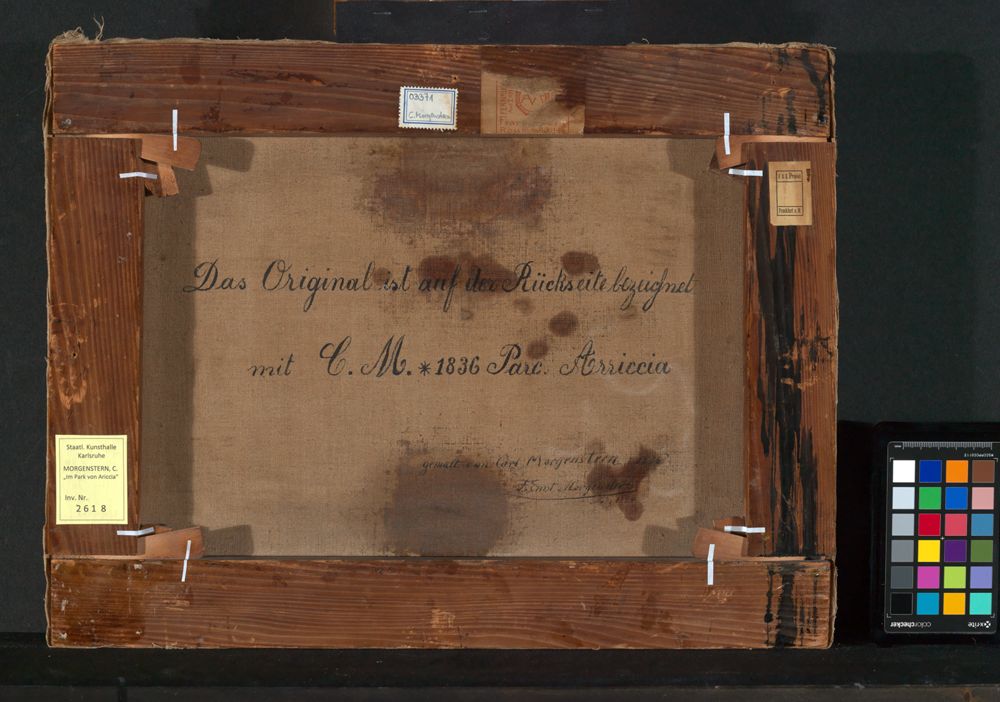 03371
C. Morgenstern
F. & A. Prestel
Frankfurt a. M.
Das Original ist auf der Rückseite bezeichnet
mit C. M. * 1836 Parc. Arriccia
gemalt von Carl Morgenstern
Ernst Morgenstern
Staatl. Kunsthalle
Karlsruhe
MORGENSTERN, C.
„Im Park von Ariccia"
Inv. Nr.
2 6 1 8
colorchecker x-rite